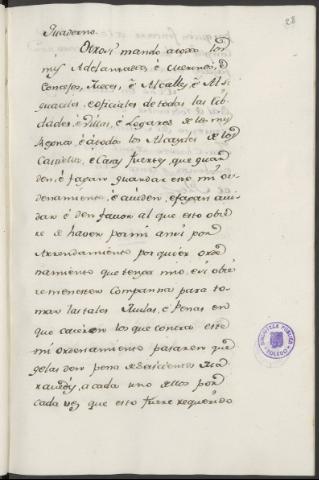 28
Quaderno.
Otrosi mando a todos los
mis Adelantados é Merinos, é
Concejos, Jueces, é Alcalles, é Al
guaciles, é oficiales de todas las Cib
dades é Villas, é Logares de los mis
Regnos, é á todos los Alcaydes de los
Castiellos, é Casas fuertes, que guar
den, é fagan guardar este mi or
denamiento, é aiuden, é fagan aiu
dar é den favor al que esto obie
re de haver por mi ansi por
Arrendamiento por quier orde
namiento que tenga mio, é si obie
re menester Compannas para to
mar las tales Mulas, é Penas en
que caieren los que contra este
mi ordenamiento pasaren que
gelas den pena de seiscientos Ma
ravedis, a cada uno dellos por
cada vez que esto fuere requerido
BIBLIOTECA PUBLICA
TOLEDO